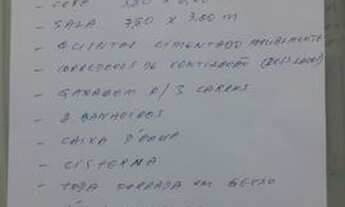 - COPA 3,80 X
- SALA 7,50 X 3,00 m
- QUINTAL CIMENTADO
- CORREDORES DE VENTILAÇÃO
- GARAGEM P/ 3 CARROS
- 2 BANHEIROS
- CAIXA D'ÁGUA
- CISTERNA
- TODA FORRADA EM GESSO